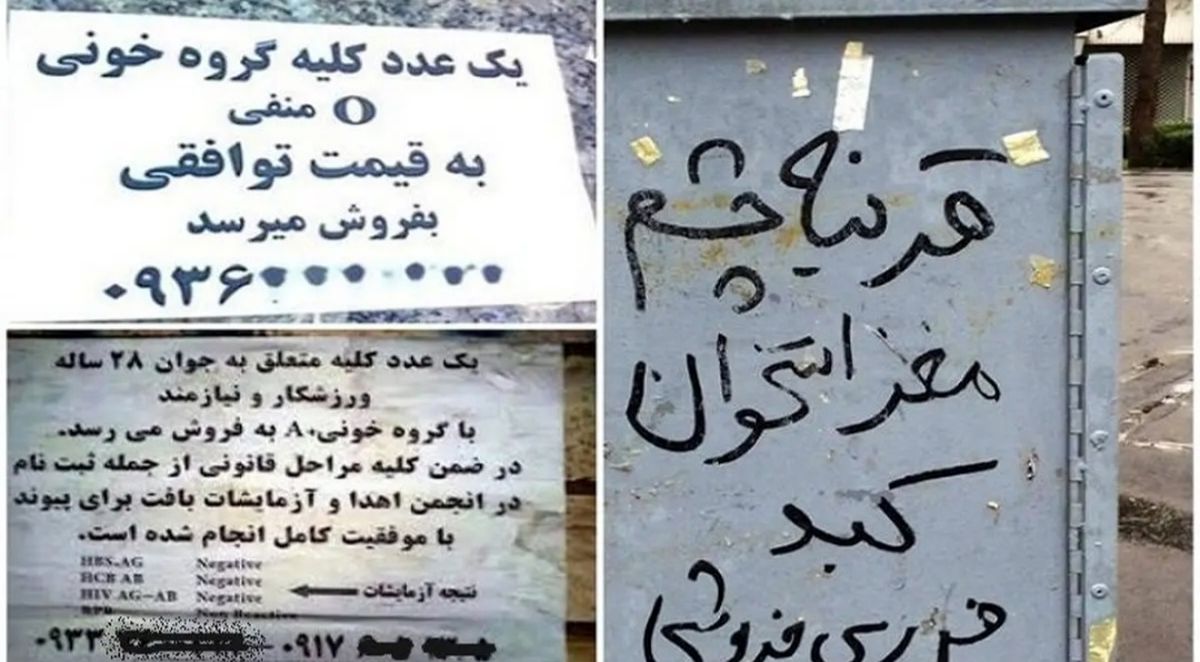 یک عدد کلیه گروه خونی
O منفی
به قیمت توافقی
بفروش میرسد
۰۹۳۶
یک عدد کلیه متعلق به جوان ۲۸ ساله
ورزشکار و نیازمند
با گروه خونی A+ به فروش می رسد.
در ضمن کلیه مراحل قانونی از جمله ثبت نام
در انجمن اهدا و آزمایشات بافت برای پیوند
با موفقیت کامل انجام شده است.
HBS.AG Negative
HCB AB Negative
HIV AG-AB Negative نتیجه آزمایشات
۰۹۳۳ -۰۹۱۷
قرنیه چشم
مغز استخوان
کبد
فوری فروشی